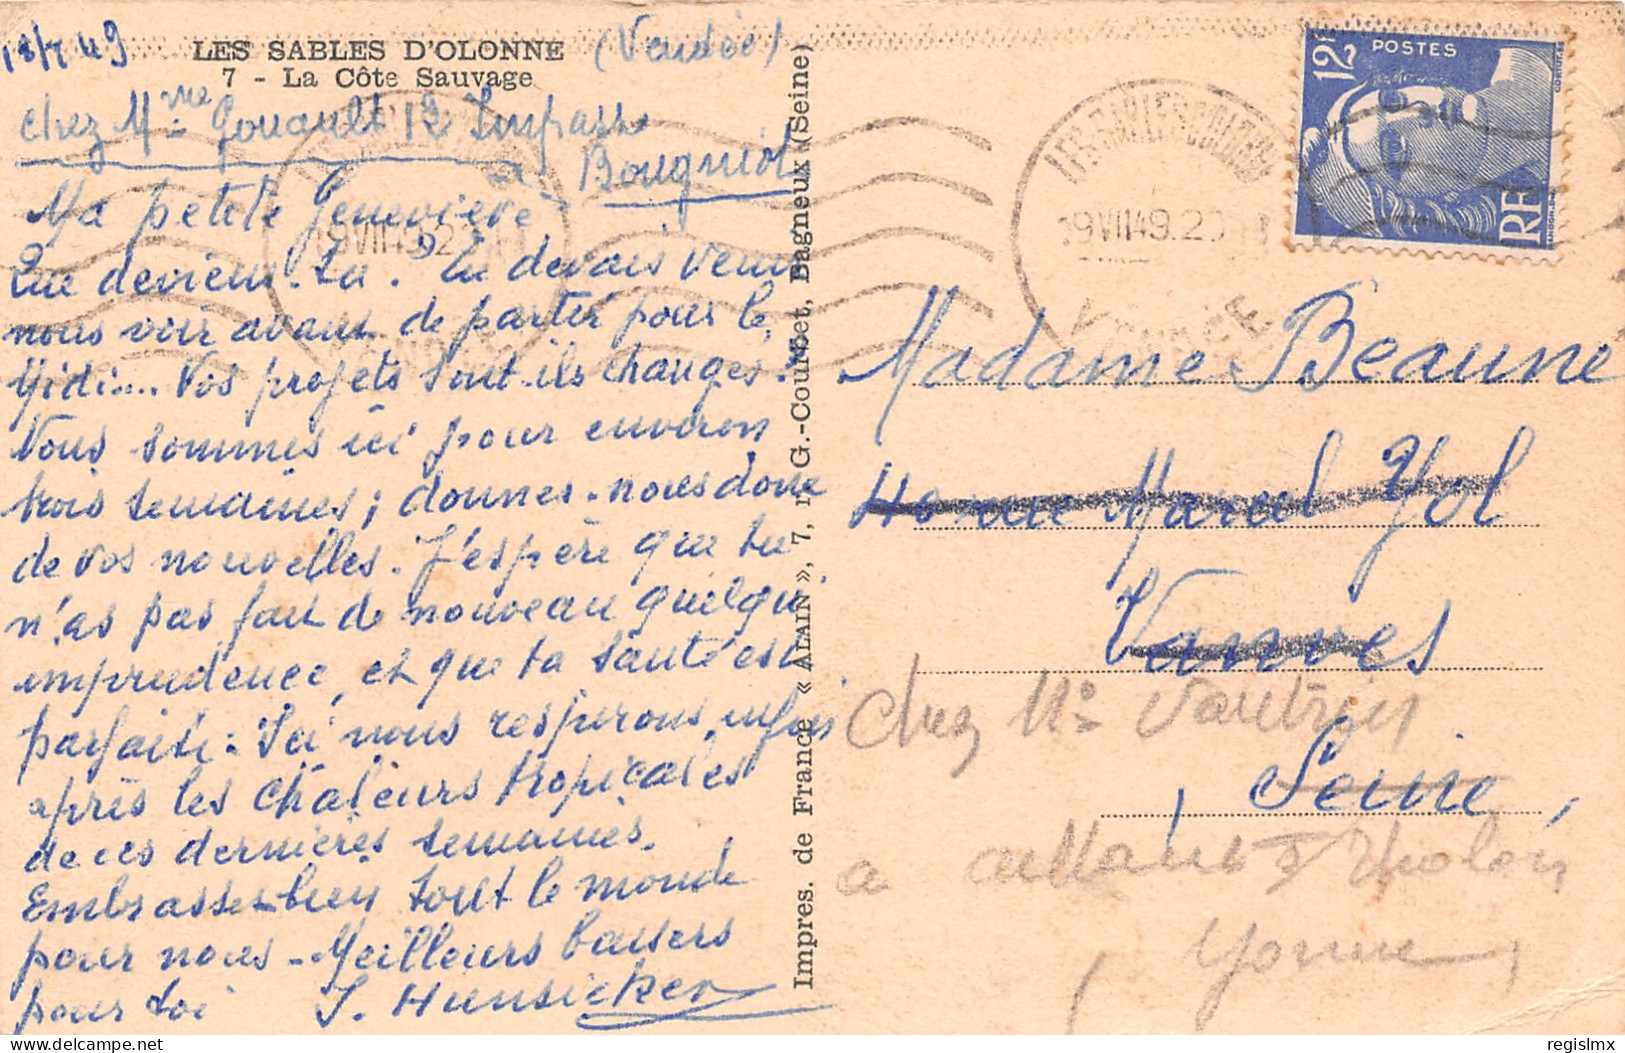 18/7 49
LES SABLES D'OLONNE
(Vendée)
7 - La Côte Sauvage
chez Mme Gouault 12 Impasse
Bougniol
Ma petite Geneviève
Que deviens-tu. Tu devais venir
nous voir avant de partir pour le
Midi.... Vos projets sont-ils changés.
Nous sommes ici pour environ
trois semaines; donnes-nous donc
de vos nouvelles. J'espère que tu
n'as pas fait de nouveau quelqu'
imprudence, et que ta santé est
parfaite. Ici nous respirons, enfin
après les chaleurs tropicales
de ces dernières semaines.
Embrasse-bien tout le monde
pour nous - Meilleurs baisers
pour toi J. Hunsicker
Impres. de France « ALAIN », 7, r. G.-Courbet, Bagneux (Seine)
12F
POSTES
RF
LES SABLES D'OLONNE
19 VII 49.20
VENDÉE
Madame Beaune
Marcel Yol
Vanves
chez Me Vautrin
Seine
a aillant s/ Tholon
Yonne
regislmx
delcampe.net